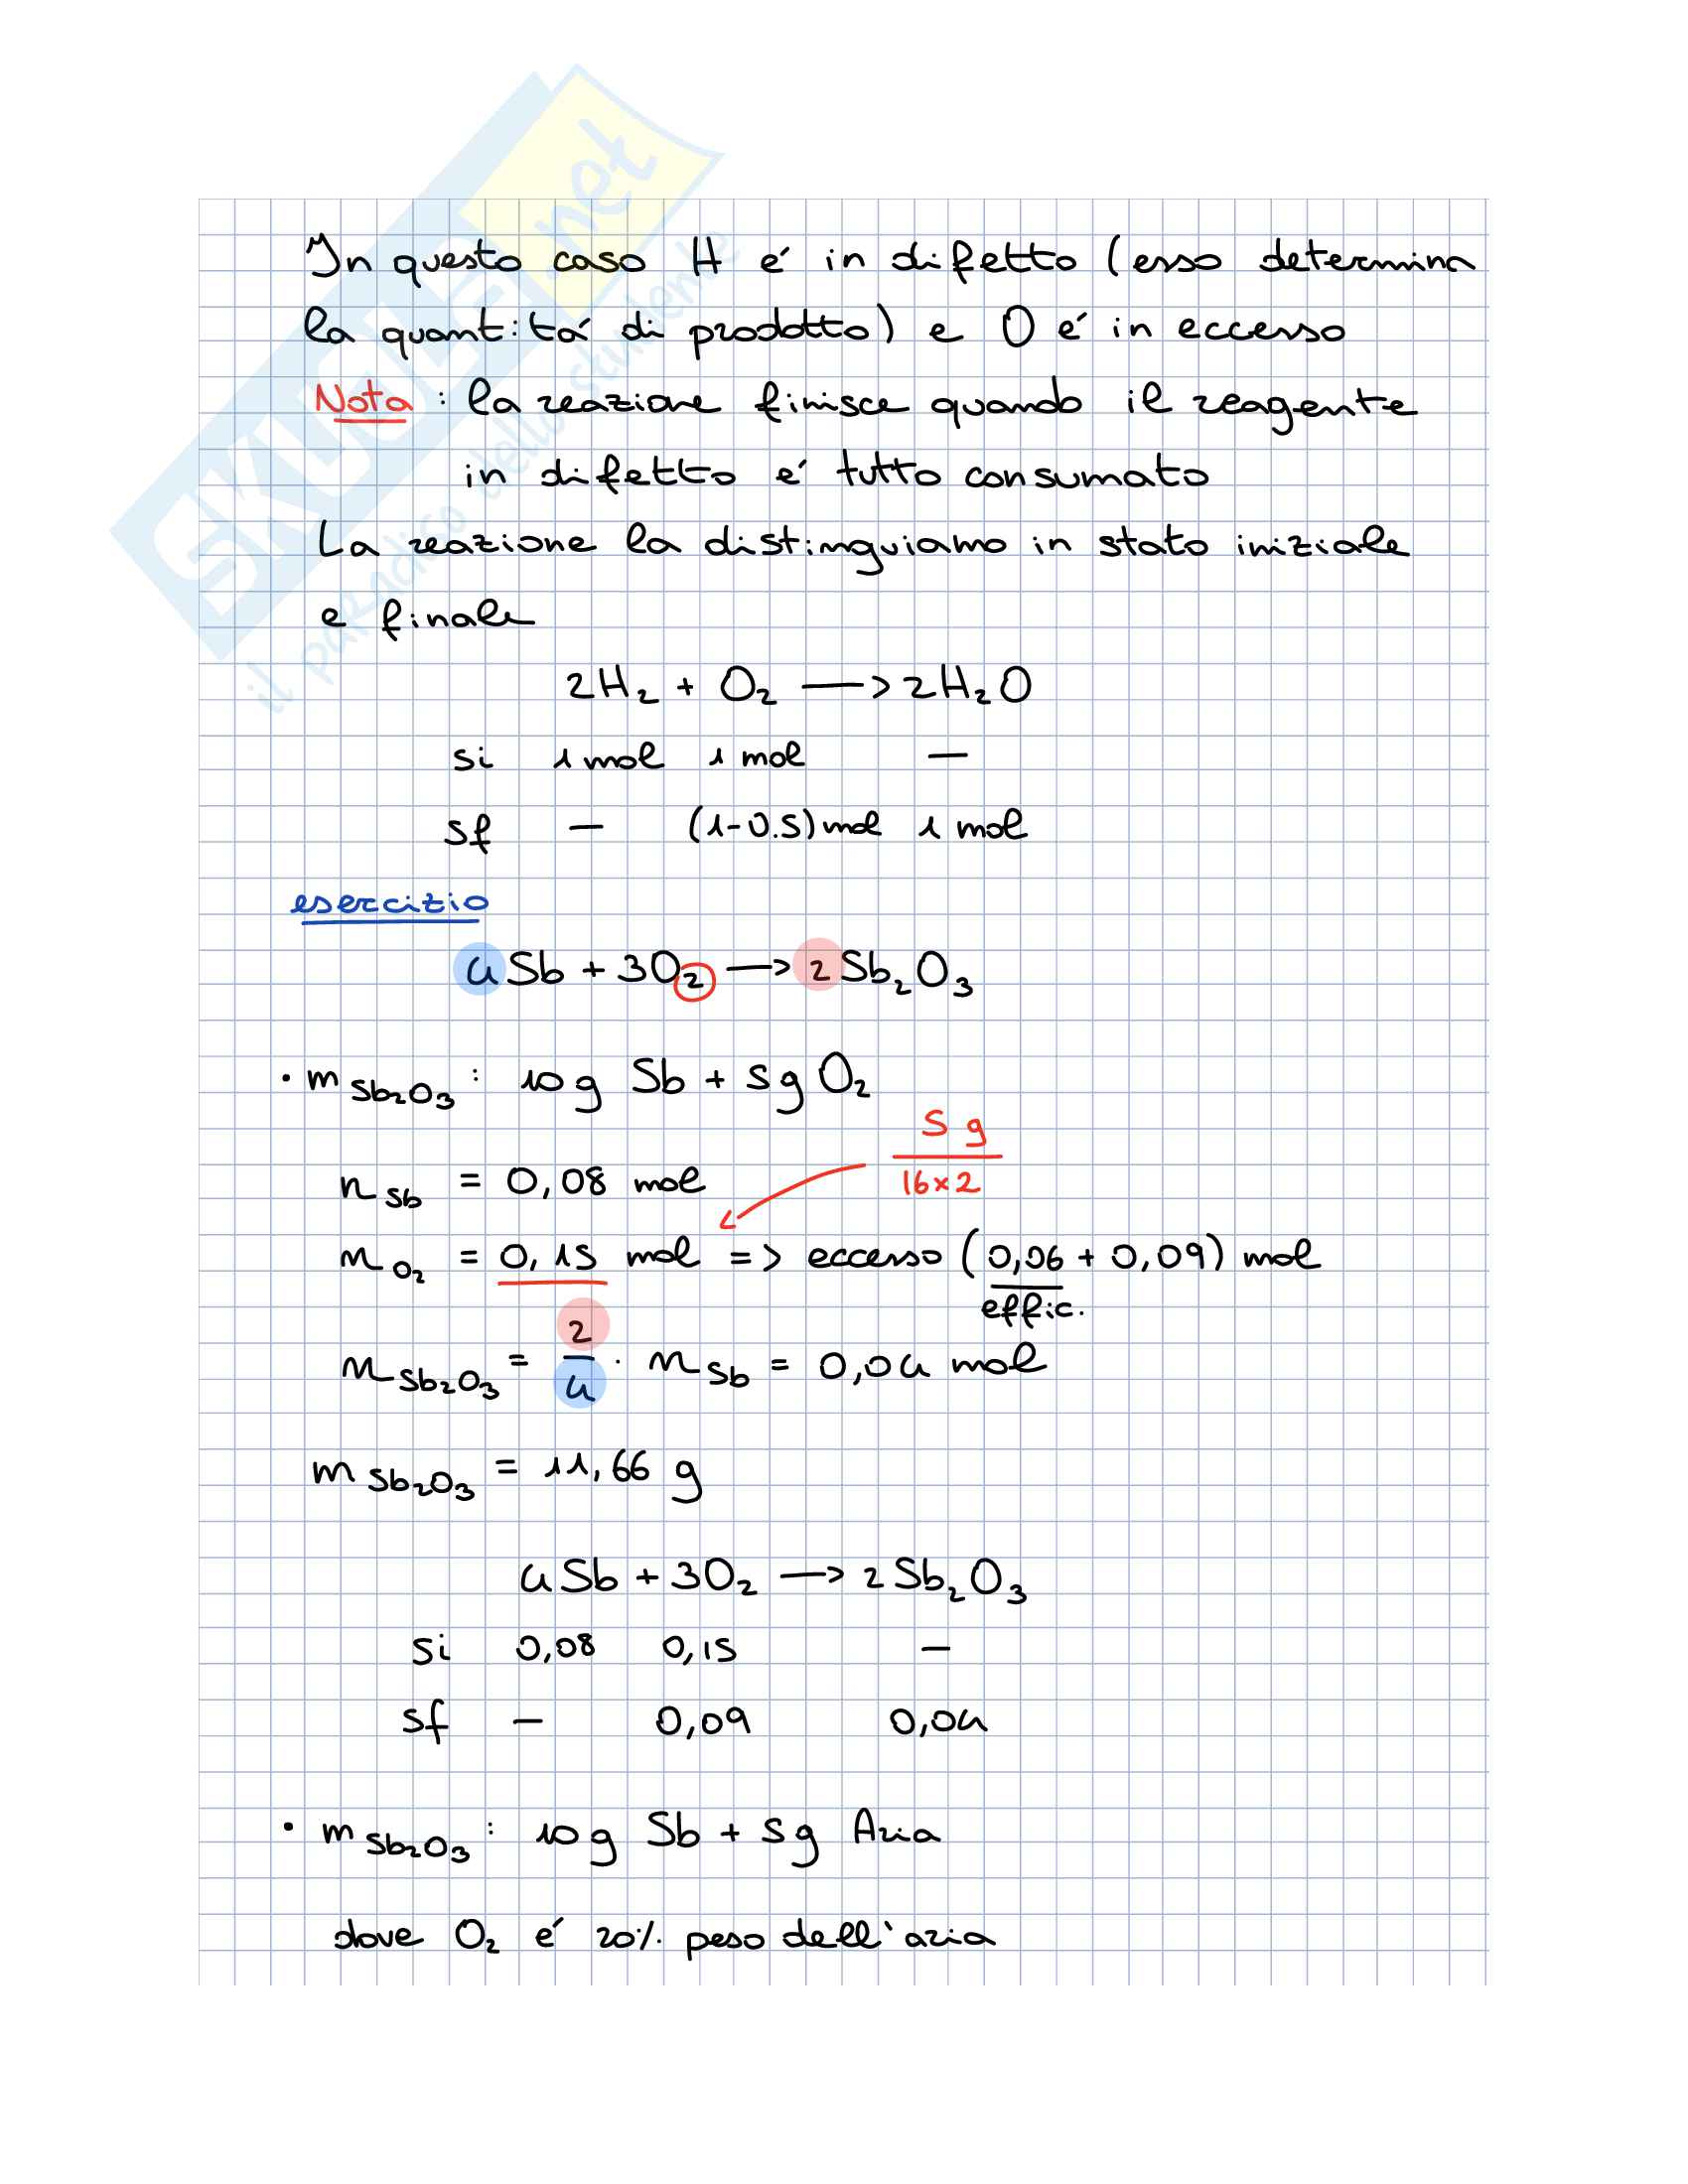 SKUOLA.net
il paradiso dello studente
In questo caso H é in difetto (esso determina
la quantitá di prodotto) e O é in eccesso
Nota: la reazione finisce quando il reagente
in difetto é tutto consumato
La reazione la distinguiamo in stato iniziale
e finale
2H₂ + O₂ → 2H₂O
si 1 mol 1 mol —
sf — (1-0.5) mol 1 mol
esercizio
4Sb + 3O₂ → 2Sb₂O₃
• m Sb₂O₃: 10g Sb + 5g O₂
5 g
16×2
n Sb = 0,08 mol
n O₂ = 0,15 mol => eccesso (0,06 + 0,09) mol
effic.
n Sb₂O₃ = 2/4 · n Sb = 0,04 mol
m Sb₂O₃ = 11,66 g
4Sb + 3O₂ → 2Sb₂O₃
si 0,08 0,15 —
sf — 0,09 0,04
• m Sb₂O₃: 10g Sb + 5g Aria
dove O₂ é 20% peso dell'aria